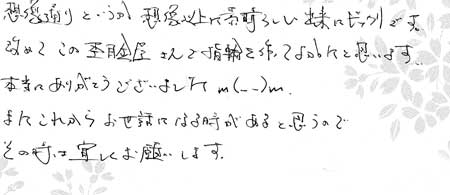 想像通りというか想像以上に素晴らしい出来にビックリです。
改めてこの 屋さんで指輪を作ってよかったと思います。
本当にありがとうございました m(_ _)m.
またこれからお世話になる時があると思うので
その時は宜しくお願いします。